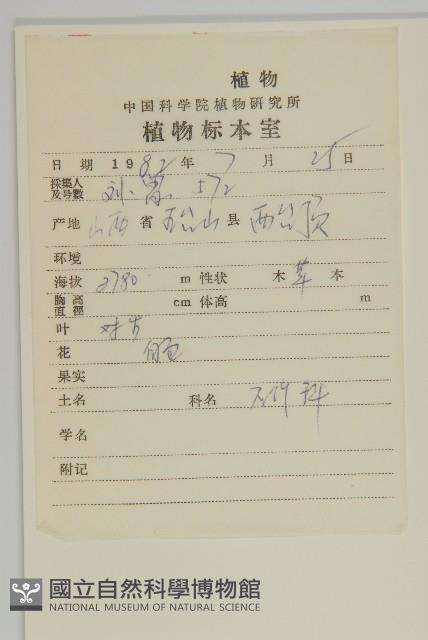 植物
中国科学院植物研究所
植物标本室
日期 1982年 7月 25日
採集人及号數 刘 572
产地 山西省 五台山县 西台顶
环境
海拔 2780 m 性状 木 草 本
胸高直徑 cm 体高 m
叶 对生
花 白色
果实
土名 科名 石竹科
学名
附记
國立自然科學博物館
NATIONAL MUSEUM OF NATURAL SCIENCE